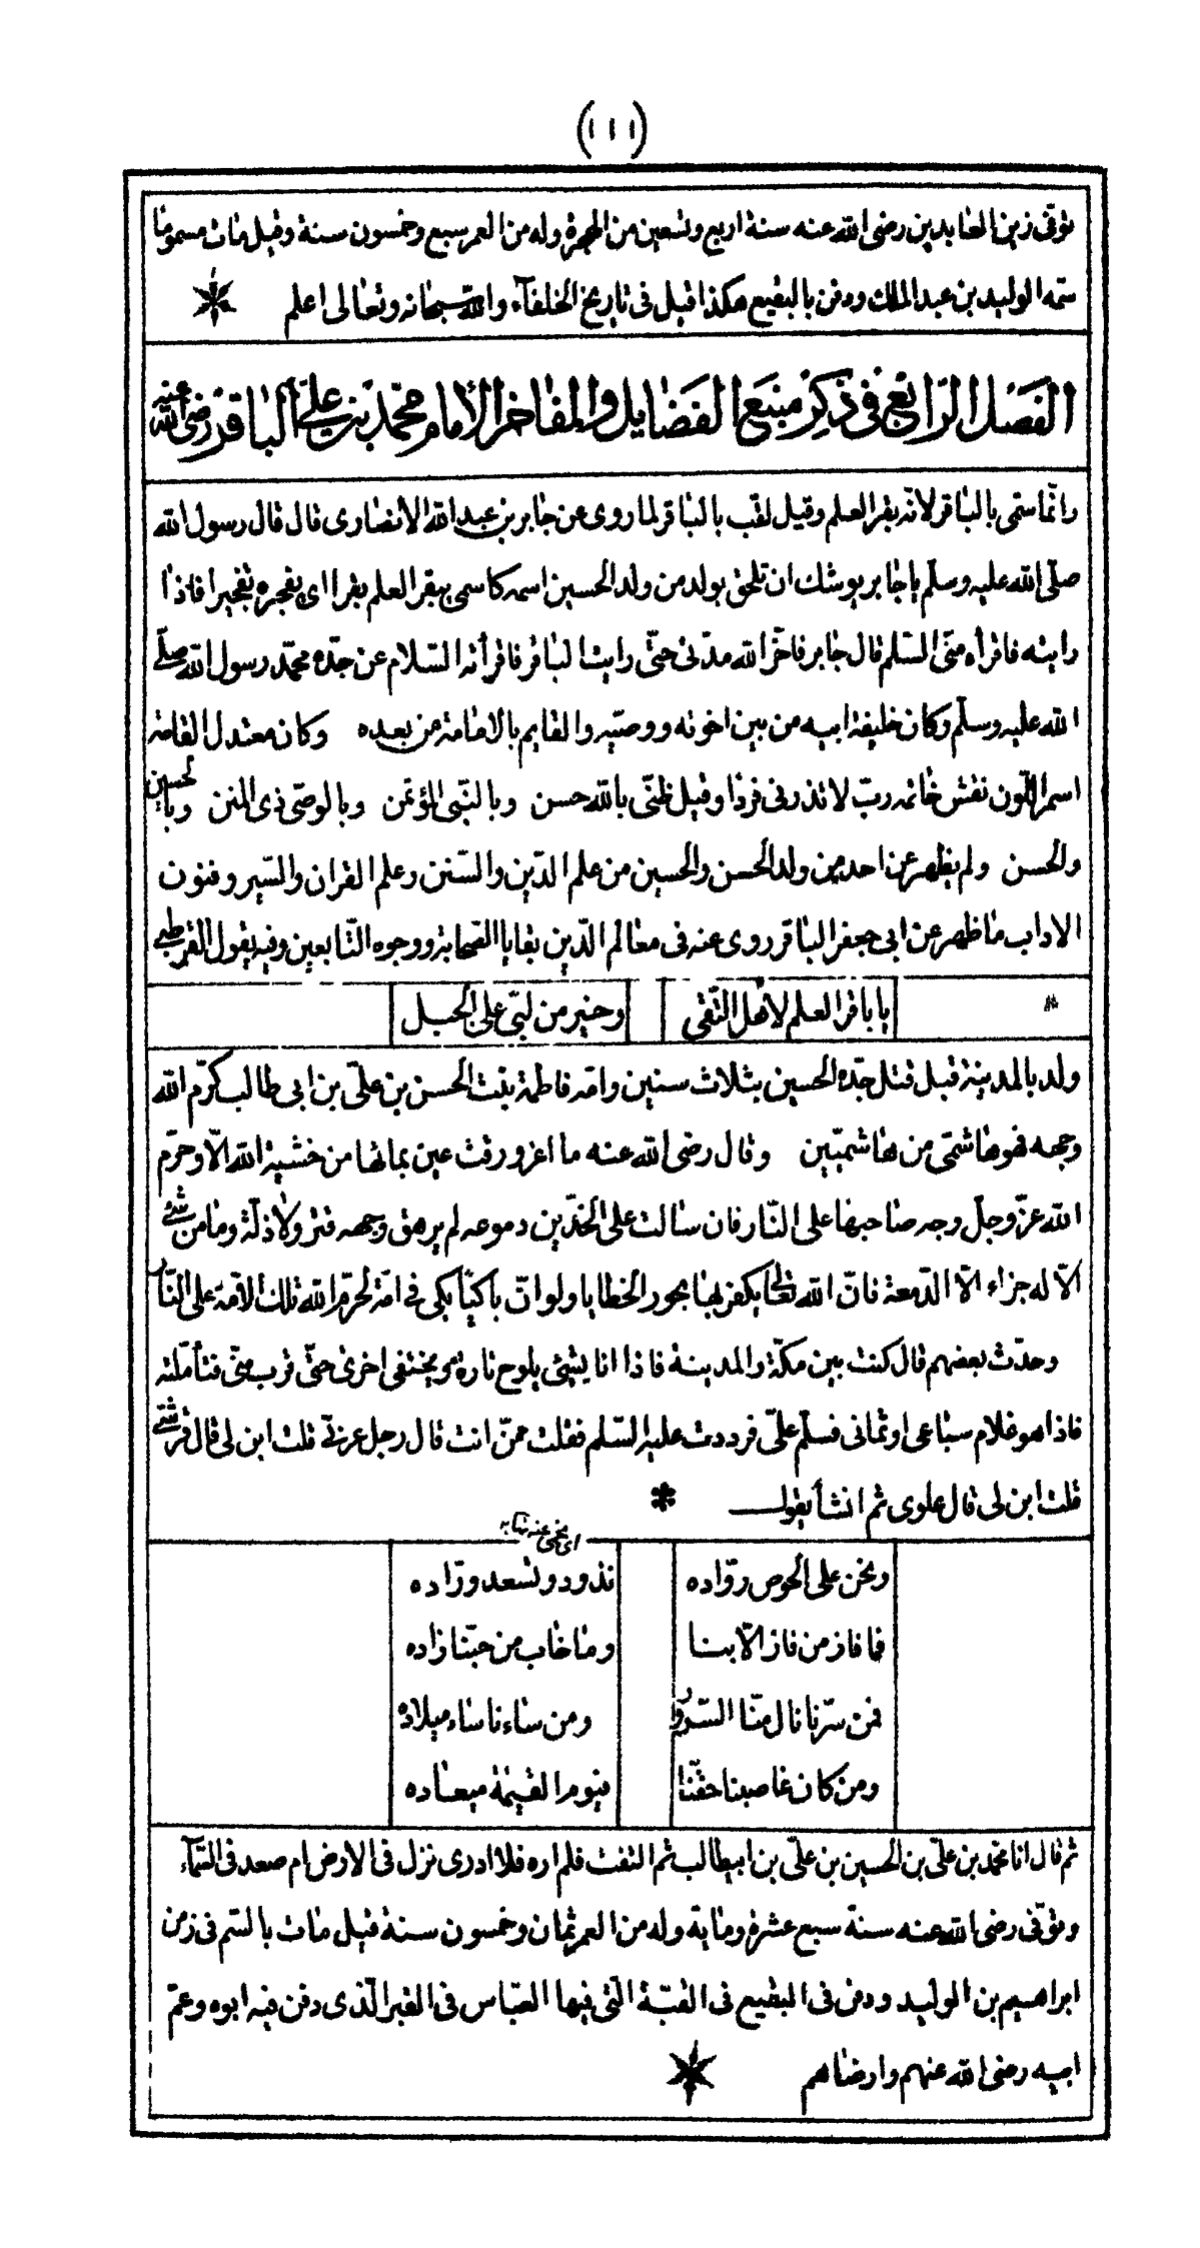 (١١١)
توفى زين العابدين رضى الله عنه سنة اربع وتسعين من الهجرة وله من العمر سبع وخمسون سنة وقيل مات مسموما
سمه الوليد بن عبد الملك ودفن بالبقيع هكذا قيل فى تاريخ الخلفآء والله سبحانه وتعالى اعلم
الفصل الرابع فى ذكر منبع الفضايل والمفاخر الامام محمد بن على الباقر رضى الله عنه
وانّما سمّى بالباقر لانّه بقر العلم وقيل لقب بالباقر لما روى عن جابر بن عبد الله الانصارى قال قال رسول الله
صلّى الله عليه وسلّم يا جابر يوشك ان تلحق بولد من ولد الحسين اسمه كاسمى يبقر العلم بقرا اى يفجره تفجيرا فاذا
رايته فاقرأه منّى السّلم قال جابر فاخّر الله مدّتى حتّى رايت الباقر فاقرأته السّلام عن جدّه محمّد رسول الله صلّى
الله عليه وسلّم وكان خليفة ابيه من بين اخوته ووصيّه والقايم بالامامة من بعده وكان معتدل القامة
اسمر اللّون نقش خاتمه ربّ لا تذرنى فردا وقيل ظنّى بالله حسن وبالنّبى المؤتمن وبالوصى ذى المنن وبالحسين
والحسن ولم يظهر عن احد من ولد الحسن والحسين من علم الدّين والسّنن وعلم القران والسّير وفنون
الاداب ما ظهر عن ابى جعفر الباقر روى عنه فى معالم الدّين بقايا الصّحابة ووجوه التّابعين وفيه يقول القرطبى
يا باقر العلم لاهل التّقى وخير من لبّى على الجبل
ولد بالمدينة قبل قتل جدّه الحسين بثلاث سنين وامّه فاطمة بنت الحسن بن علىّ بن ابى طالب كرّم الله
وجهه فهو هاشمى من هاشميّين وقال رضى الله عنه ما اغرورقت عين بمائها من خشية الله الّا وحرّم
الله عزّ وجلّ وجه صاحبها على النّار فان سالت على الخدّين دموعه لم يرهق وجهه قتر ولا ذلّة وما من شئ
الّا له جزاء الّا الدّمعة فانّ الله تعالى يكفر بها بحور الخطايا ولو انّ باكيًا بكى فى امّة لحرّم الله تلك الامّة على النّار
وحدّث بعضهم قال كنت بين مكّة والمدينة فاذا انا بشئ يلوح تارة ويختفى اخرى حتّى قرب منّى فتأمّلته
فاذا هو غلام سباعى او ثمانى فسلّم علىّ فرددت عليه السّلم فقلت ممّن انت قال رجل عربىّ قلت ابن لى قال قرشىّ
قلت ابن لى قال علوى ثم انشأ يقول
ونحن على الحوض روّاده نذود وتسعد ورّاده
فما فاز من فاز الّا بنا وما خاب من حبّنا زاده
فمن سرّنا نال منّا السّرور ومن ساءنا ساء ميلاده
ومن كان غاصبنا حقّنا فيوم القيمة ميعاده
ثم قال انا محمد بن علىّ بن الحسين بن علىّ بن ابيطالب ثم التفت فلم اره فلا ادرى نزل فى الارض ام صعد فى السّمآء
وتوفّى رضى الله عنه سنة سبع عشرة وماية وله من العمر ثمان وخمسون سنة قيل مات بالسّم فى زمن
ابراهيم بن الوليد ودفن فى البقيع فى القبّة الّتى فيها العبّاس فى القبر الّذى دفن فيه ابوه وعمّ
ابيه رضى الله عنهم وارضاهم